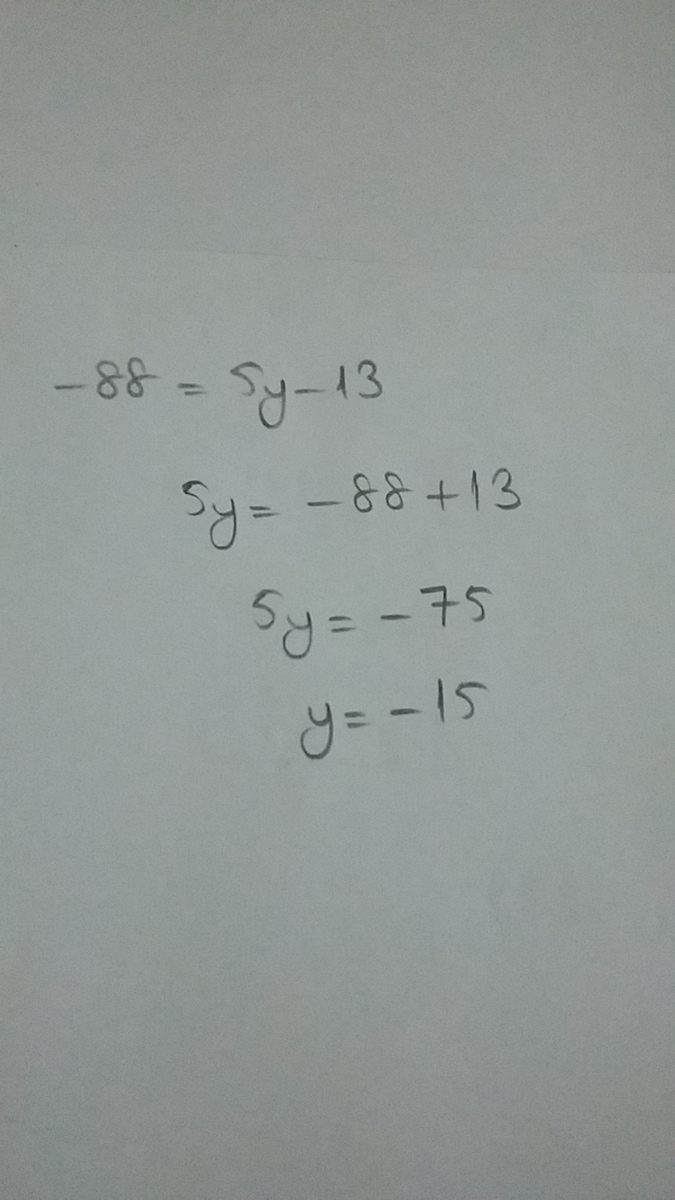 -88 = 5y-13
5y = -88+13
5y = -75
y = -15